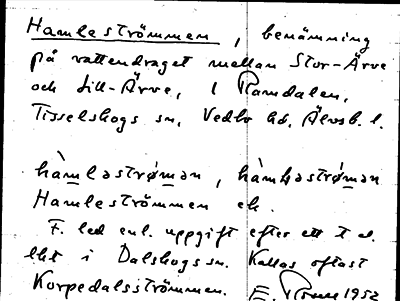 Hamleströmmen, benämning
på vattendraget mellan Stor-Ärve
och Lill-Ärve, i Ramdalen,
Tisselskogs sn, Vedbo hd, Älvsb. l.
hàmlastrǿman, hàmlastrǿman
Hamleströmmen el.
F. led enl. uppgift efter ett t el.
lht i Dalskogs sn. Kallas oftast
Korpedalsströmmen. 1952